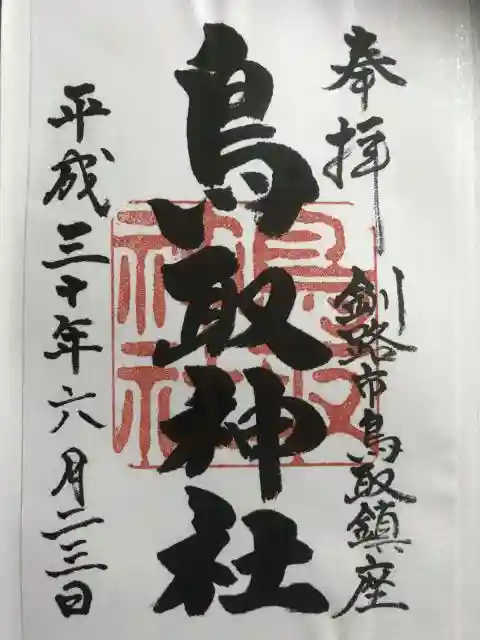 奉拝
釧路市鳥取鎮座
鳥取神社
鳥取神社
平成三十年六月二三日